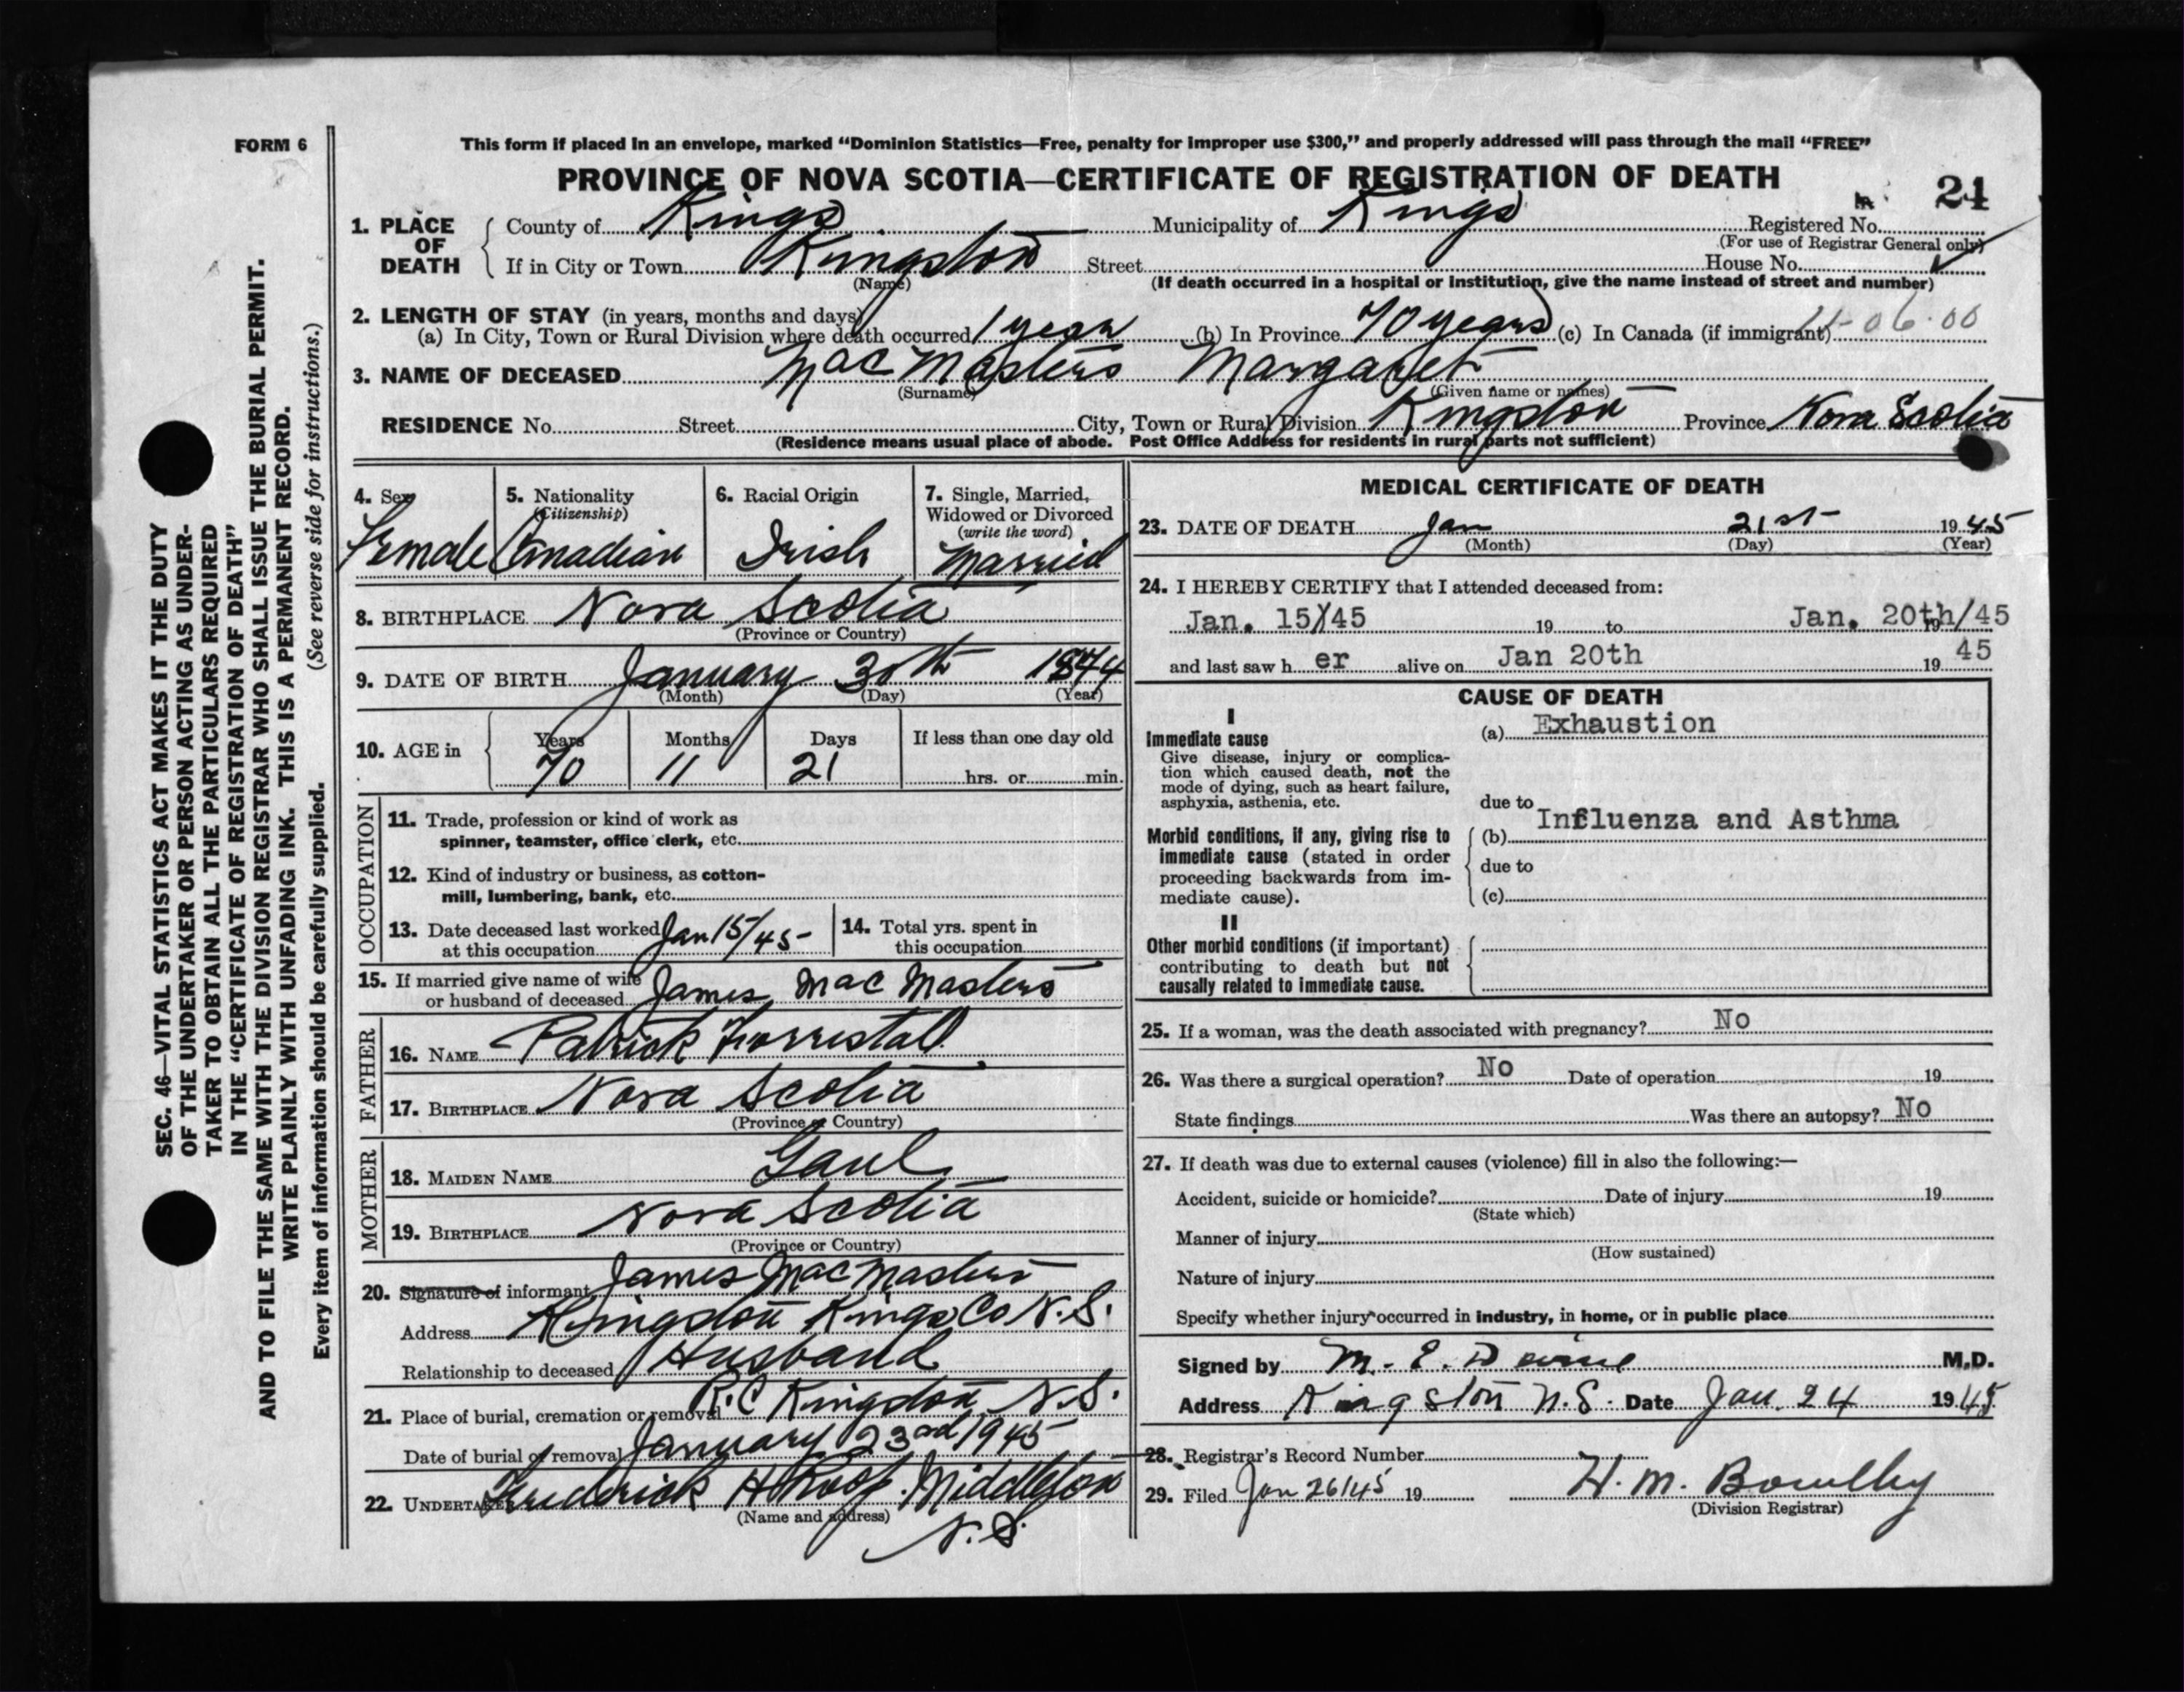 FORM 6
This form if placed in an envelope, marked "Dominion Statistics—Free, penalty for improper use $300," and properly addressed will pass through the mail "FREE"
PROVINCE OF NOVA SCOTIA—CERTIFICATE OF REGISTRATION OF DEATH
24
1. PLACE OF DEATH County of Kings Municipality of Kings Registered No.
(For use of Registrar General only)
If in City or Town Kingston Street House No.
(Name) (If death occurred in a hospital or institution, give the name instead of street and number)
2. LENGTH OF STAY (in years, months and days)
(a) In City, Town or Rural Division where death occurred 1 year (b) In Province 70 years (c) In Canada (if immigrant)
3. NAME OF DECEASED MacMasters Margaret
(Surname) (Given name or names)
RESIDENCE No. Street City, Town or Rural Division Kingston Province Nova Scotia
(Residence means usual place of abode. Post Office Address for residents in rural parts not sufficient)
4. Sex Female
5. Nationality (Citizenship) Canadian
6. Racial Origin Irish
7. Single, Married, Widowed or Divorced (write the word) Married
8. BIRTHPLACE Nova Scotia
(Province or Country)
9. DATE OF BIRTH January 30th 1874
(Month) (Day) (Year)
10. AGE in Years 70 Months 11 Days 21 If less than one day old hrs. or min.
OCCUPATION
11. Trade, profession or kind of work as
spinner, teamster, office clerk, etc.
12. Kind of industry or business, as cotton-
mill, lumbering, bank, etc.
13. Date deceased last worked at this occupation Jan 15/45
14. Total yrs. spent in this occupation
15. If married give name of wife
or husband of deceased James MacMasters
FATHER
16. NAME Patrick Forrestall
17. BIRTHPLACE Nova Scotia
(Province or Country)
MOTHER
18. MAIDEN NAME Gaul
19. BIRTHPLACE Nova Scotia
(Province or Country)
20. Signature of informant James MacMasters
Address Kingston Kings Co N.S.
Relationship to deceased Husband
21. Place of burial, cremation or removal R.C Kingston N.S.
Date of burial or removal January 23rd 1945
22. UNDERTAKER Frederick H Roop. Middleton
(Name and address)
N.S.
MEDICAL CERTIFICATE OF DEATH
23. DATE OF DEATH Jan 21st 1945
(Month) (Day) (Year)
24. I HEREBY CERTIFY that I attended deceased from:
Jan. 15/45 19 to Jan. 20th/45 19
and last saw h er alive on Jan 20th 19 45
CAUSE OF DEATH
I
Immediate cause
Give disease, injury or complica-
tion which caused death, not the
mode of dying, such as heart failure,
asphyxia, asthenia, etc.
(a) Exhaustion
due to
Morbid conditions, if any, giving rise to
immediate cause (stated in order
proceeding backwards from im-
mediate cause).
(b) Influenza and Asthma
due to
(c)
II
Other morbid conditions (if important)
contributing to death but not
causally related to immediate cause.
25. If a woman, was the death associated with pregnancy? No
26. Was there a surgical operation? No Date of operation 19
State findings Was there an autopsy? No
27. If death was due to external causes (violence) fill in also the following:—
Accident, suicide or homicide? Date of injury 19
(State which)
Manner of injury
(How sustained)
Nature of injury
Specify whether injury occurred in industry, in home, or in public place
Signed by M. E. M.D.
Address Kingston N.S. Date Jan. 24 1945
28. Registrar's Record Number
29. Filed Jan 26/45 19 H. M. Bowlby
(Division Registrar)
SEC. 46—VITAL STATISTICS ACT MAKES IT THE DUTY
OF THE UNDERTAKER OR PERSON ACTING AS UNDER-
TAKER TO OBTAIN ALL THE PARTICULARS REQUIRED
IN THE "CERTIFICATE OF REGISTRATION OF DEATH"
AND TO FILE THE SAME WITH THE DIVISION REGISTRAR WHO SHALL ISSUE THE BURIAL PERMIT.
WRITE PLAINLY WITH UNFADING INK. THIS IS A PERMANENT RECORD.
Every item of information should be carefully supplied. (See reverse side for instructions.)